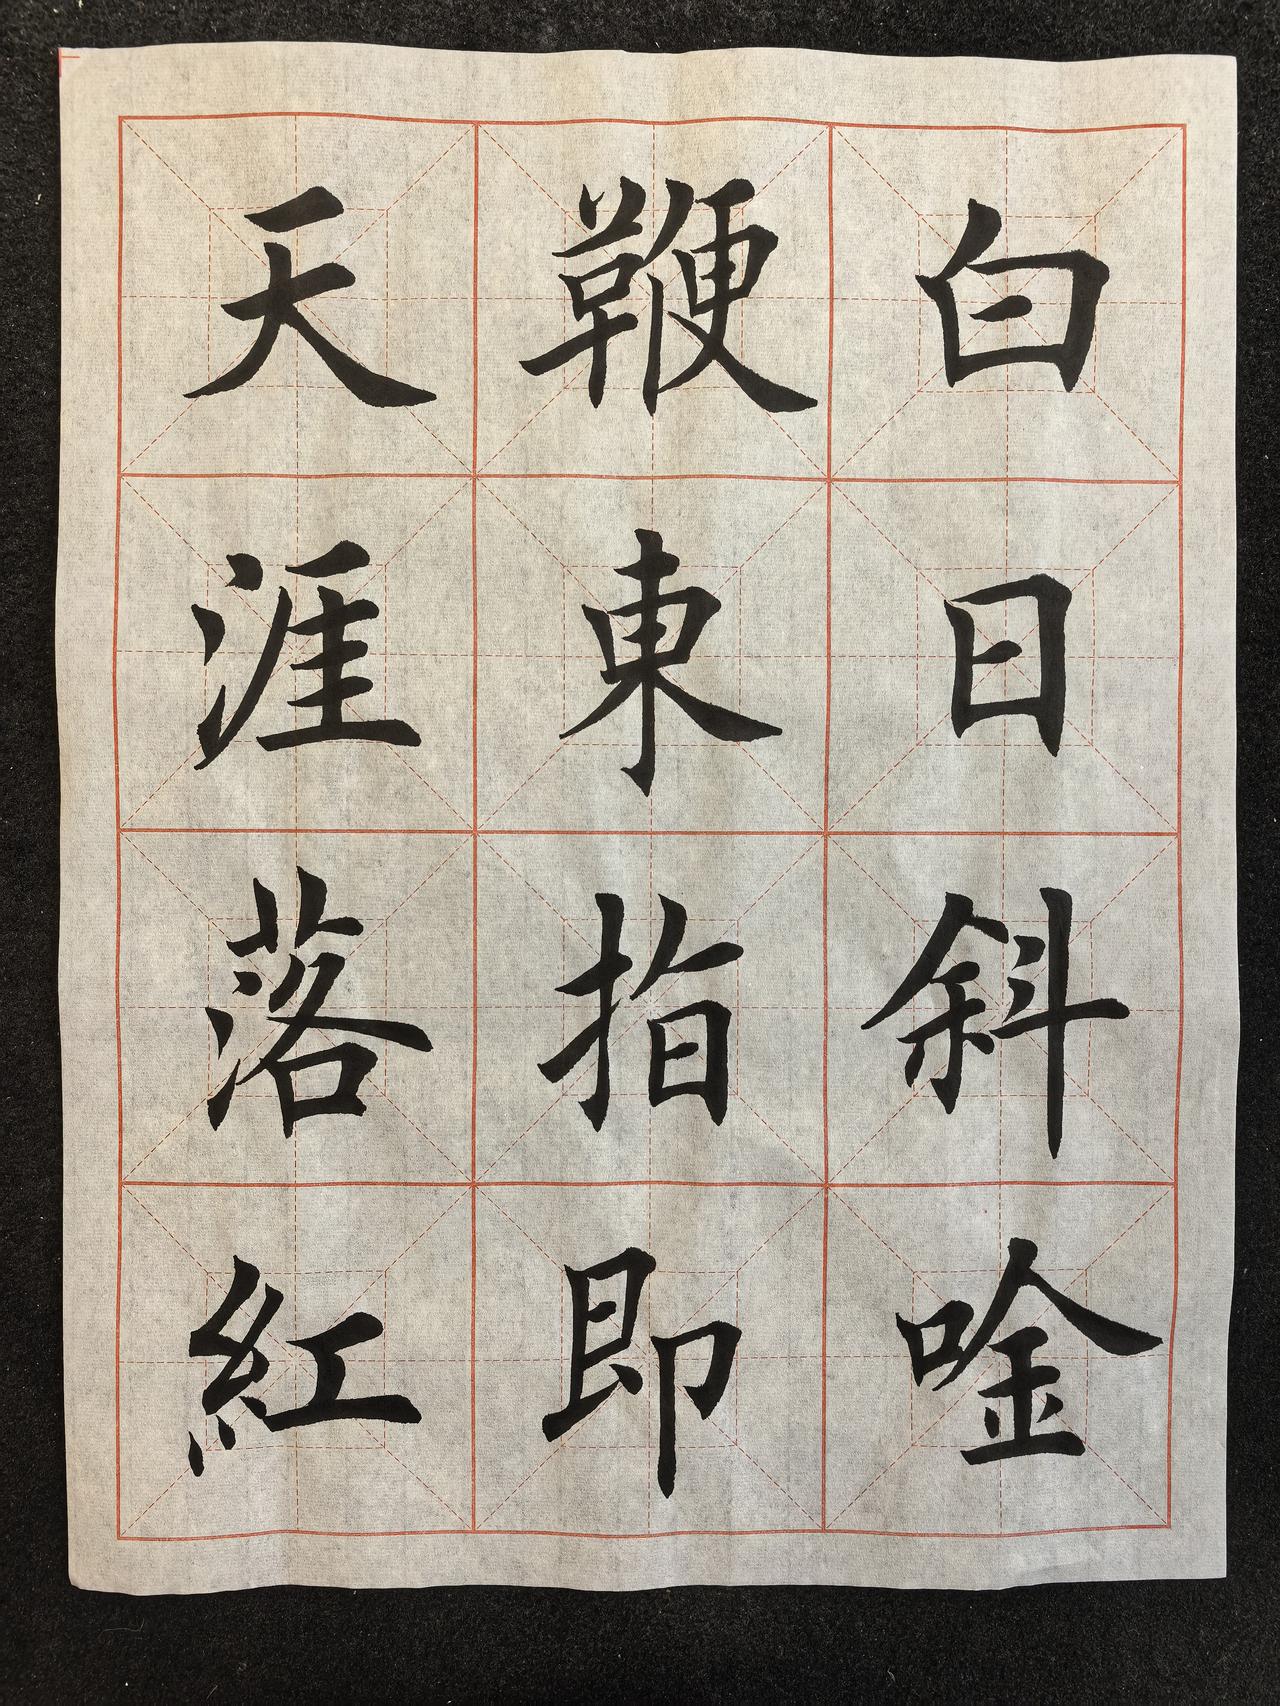 白日斜唫
鞭東指即
天涯落紅